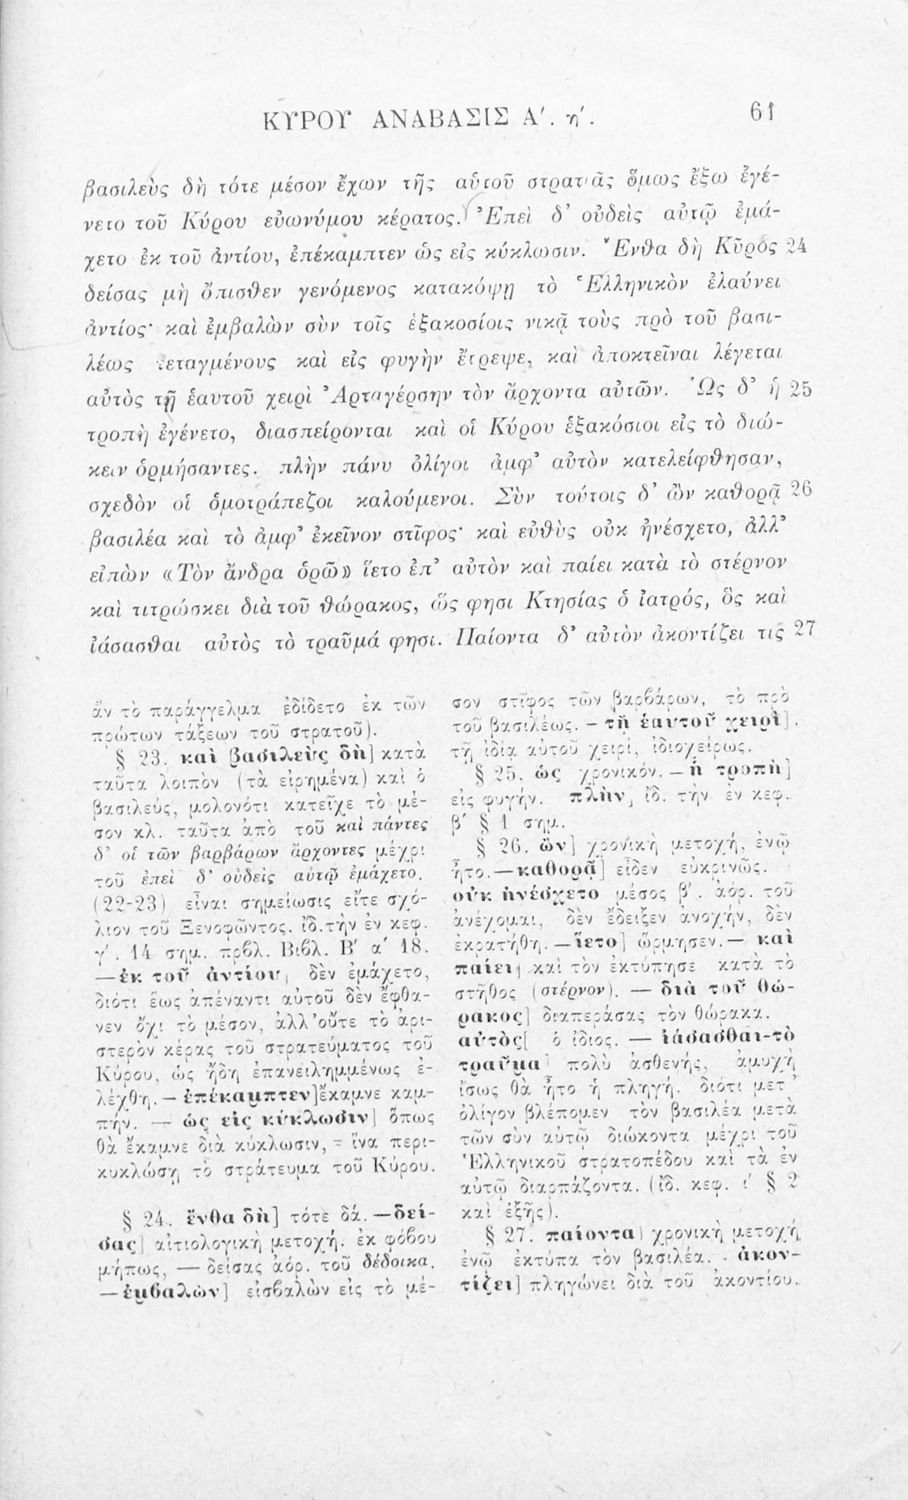 ΚΥΡΟΥ ΑΝΑΒΑΣΙΣ Α΄. η΄.
61
βασιλεὺς δὴ τότε μέσον ἔχων τῆς αὑτοῦ στρατιᾶς ὅμως ἔξω ἐγέ-
νετο τοῦ Κύρου εὐωνύμου κέρατος. Ἐπεὶ δ’ οὐδεὶς αὐτῷ ἐμά-
χετο ἐκ τοῦ ἀντίου, ἐπέκαμπτεν ὡς εἰς κύκλωσιν. Ἔνθα δὴ Κῦρος 24
δείσας μὴ ὄπισθεν γενόμενος κατακόψῃ τὸ Ἑλληνικὸν ἐλαύνει
ἀντίος· καὶ ἐμβαλὼν σὺν τοῖς ἑξακοσίοις νικᾷ τοὺς πρὸ τοῦ βασι-
λέως τεταγμένους καὶ εἰς φυγὴν ἔτρεψε, καὶ ἀποκτεῖναι λέγεται
αὐτὸς τῇ ἑαυτοῦ χειρὶ Ἀρταγέρσην τὸν ἄρχοντα αὐτῶν. Ὡς δ’ ἡ 25
τροπὴ ἐγένετο, διασπείρονται καὶ οἱ Κύρου ἑξακόσιοι εἰς τὸ διώ-
κειν ὁρμήσαντες. πλὴν πάνυ ὀλίγοι ἀμφ’ αὐτὸν κατελείφθησαν,
σχεδὸν οἱ ὁμοτράπεζοι καλούμενοι. Σὺν τούτοις δ’ ὢν καθορᾷ 26
βασιλέα καὶ τὸ ἀμφ’ ἐκεῖνον στῖφος· καὶ εὐθὺς οὐκ ἠνέσχετο, ἀλλ’
εἰπὼν «Τὸν ἄνδρα ὁρῶ» ἵετο ἐπ’ αὐτὸν καὶ παίει κατὰ τὸ στέρνον
καὶ τιτρώσκει διὰ τοῦ θώρακος, ὥς φησι Κτησίας ὁ ἰατρός, ὃς καὶ
ἰάσασθαι αὐτὸς τὸ τραῦμά φησι. Παίοντα δ’ αὐτὸν ἀκοντίζει τις 27
ἂν τὸ παράγγελμα ἐδίδετο ἐκ τῶν
πρώτων τάξεων τοῦ στρατοῦ).
§ 23. καὶ βασιλεὺς δὴ] κατὰ
ταῦτα λοιπὸν (τὰ εἰρημένα) καὶ ὁ
βασιλεύς, μολονότι κατεῖχε τὸ μέ-
σον κλ. ταῦτα ἀπὸ τοῦ καὶ πάντες
δ’ οἱ τῶν βαρβάρων ἄρχοντες μέχρι
τοῦ ἐπεὶ δ’ οὐδεὶς αὐτῷ ἐμάχετο.
(22-23) εἶναι σημείωσις εἴτε σχό-
λιον τοῦ Ξενοφῶντος. ἴδ. τὴν ἐν κεφ.
γ΄. 14 σημ. πρβλ. Βιβλ. Β΄ α΄ 18.
—ἐκ τοῦ ἀντίου, δὲν ἐμάχετο,
διότι ἕως ἀπέναντι αὐτοῦ δὲν ἔφθα-
νεν ὄχι τὸ μέσον, ἀλλ’ οὔτε τὸ ἀρι-
στερὸν κέρας τοῦ στρατεύματος τοῦ
Κύρου, ὡς ἤδη ἐπανειλημμένως ἐ-
λέχθη. — ἐπέκαμπτεν] ἔκαμνε καμ-
πήν. — ὡς εἰς κύκλωσιν] ὅπως
θὰ ἔκαμνε διὰ κύκλωσιν, = ἵνα περι-
κυκλώσῃ τὸ στράτευμα τοῦ Κύρου.
§ 24. ἔνθα δὴ] τότε δά. —δεί-
σας] αἰτιολογικὴ μετοχή. ἐκ φόβου
μήπως, — δείσας ἀόρ. τοῦ δέδοικα.
—ἐμβαλὼν] εἰσβαλὼν εἰς τὸ μέ-
σον στῖφος τῶν βαρβάρων, τὸ πρὸ
τοῦ βασιλέως. – τῇ ἑαυτοῦ χειρὶ],
τῇ ἰδίᾳ αὐτοῦ χειρί, ἰδιοχείρως.
§ 25. ὡς χρονικόν. — ἡ τροπὴ]
εἰς φυγήν. πλὴν, ἴδ. τὴν ἐν κεφ.
β΄ § 1 σημ.
§ 26. ὢν] χρονικὴ μετοχή, ἐνῷ
ἦτο. —καθορᾷ] εἶδεν εὐκρινῶς.
οὐκ ἠνέσχετο μέσος β΄. ἀόρ. τοῦ
ἀνέχομαι, δὲν ἔδειξεν ἀνοχήν, δὲν
ἐκρατήθη. —ἵετο] ὥρμησεν. — καὶ
παίει] καὶ τὸν ἐκτύπησε κατὰ τὸ
στῆθος (στέρνον). — διὰ τοῦ θώ-
ρακος] διαπεράσας τὸν θώρακα.
αὐτὸς[ ὁ ἴδιος. — ἰάσασθαι-τὸ
τραῦμα] πολὺ ἀσθενής, ἀμυχὴ
ἴσως θὰ ἦτο ἡ πληγή. διότι μετ’
ὀλίγον βλέπομεν τὸν βασιλέα μετὰ
τῶν σὺν αὐτῷ διώκοντα μέχρι τοῦ
Ἑλληνικοῦ στρατοπέδου καὶ τὰ ἐν
αὐτῷ διαρπάζοντα. (ἴδ. κεφ. ι΄ § 2
καὶ ἑξῆς).
§ 27. παίοντα] χρονικὴ μετοχή,
ἐνῷ ἐκτύπα τὸν βασιλέα. - ἀκον-
τίζει] πληγώνει διὰ τοῦ ἀκοντίου.